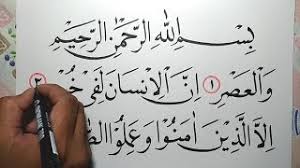 بِسْمِ اللهِ الرَّحْمٰنِ الرَّحِيْمِ
وَالْعَصْرِ ١ اِنَّ الْاِنْسَانَ لَفِيْ خُ ٢
اِلَّا الَّذِيْنَ اٰمَنُوْا وَعَمِلُوا